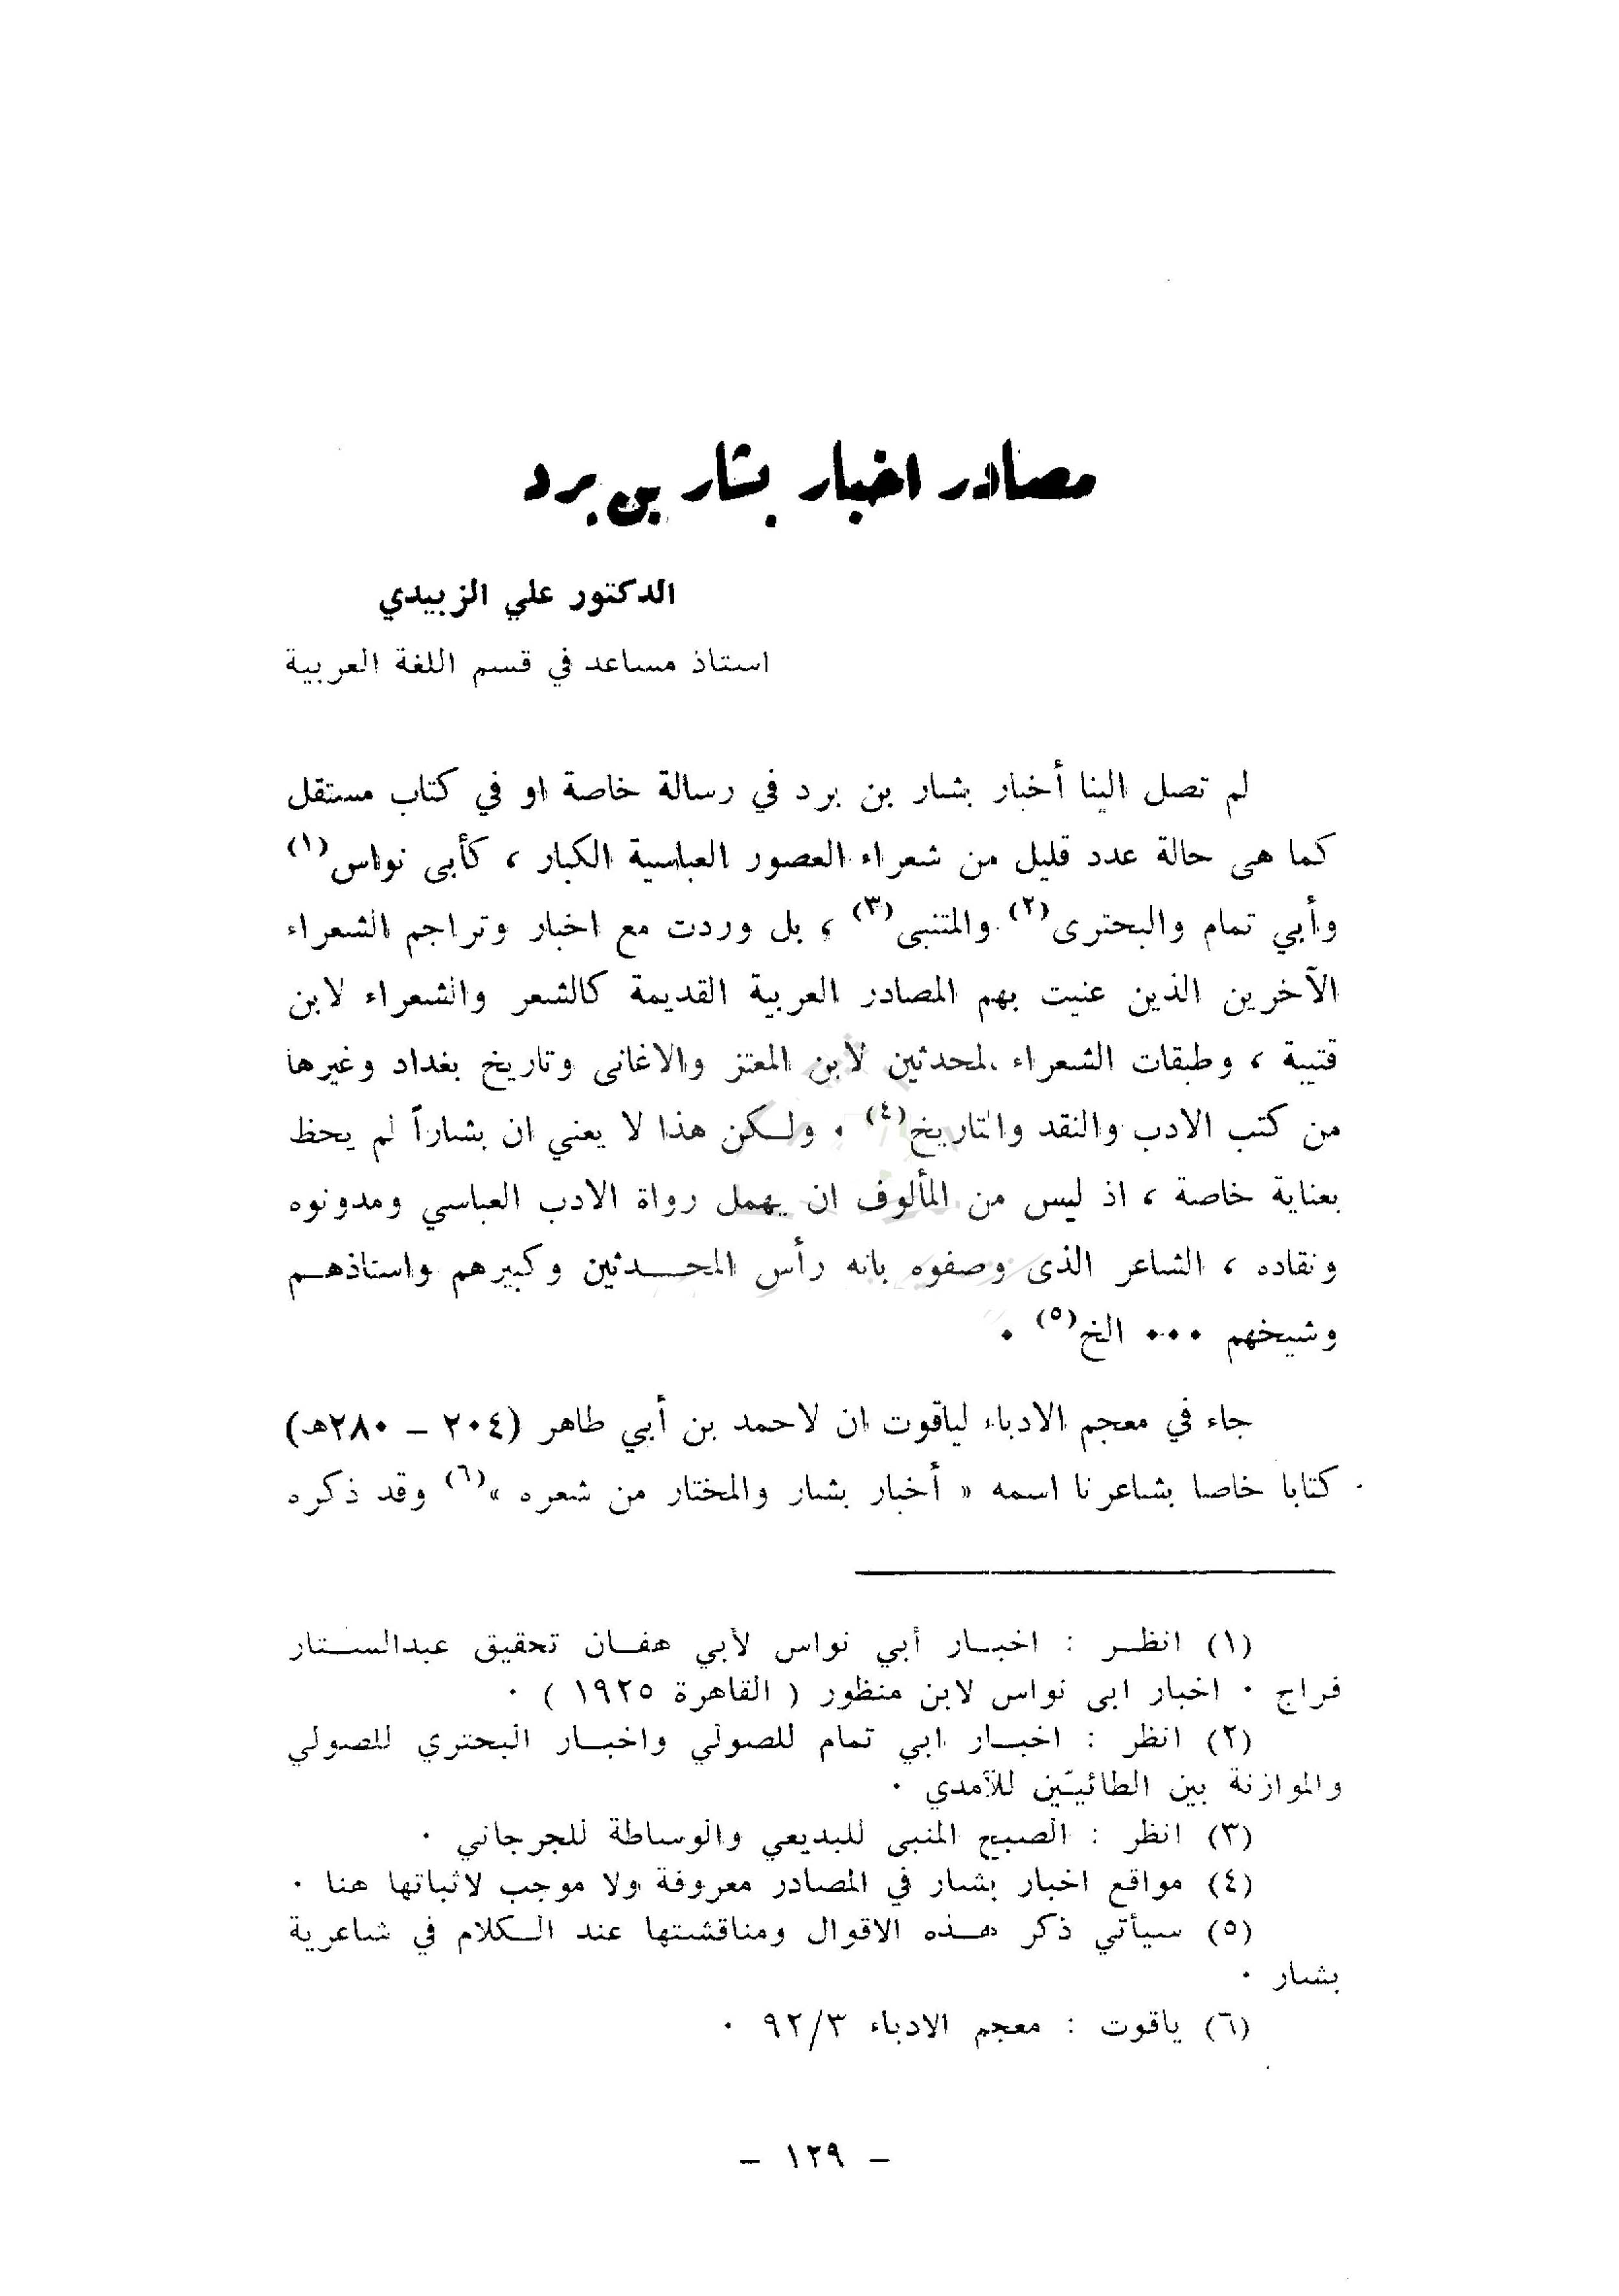 مصادر اخبار بشار بن برد
الدكتور علي الزبيدي
استاذ مساعد في قسم اللغة العربية
لم تصل الينا أخبار بشار بن برد في رسالة خاصة او في كتاب مستقل
كما هى حالة عدد قليل من شعراء العصور العباسية الكبار ، كأبى نواس(١)
وأبي تمام والبحترى(٢) والمتنبى(٣) ، بل وردت مع اخبار وتراجم الشعراء
الآخرين الذين عنيت بهم المصادر العربية القديمة كالشعر والشعراء لابن
قتيبة ، وطبقات الشعراء لمحدثين لابن المعتز والاغانى وتاريخ بغداد وغيرها
من كتب الادب والنقد والتاريخ(٤) . ولكن هذا لا يعني ان بشاراً لم يحظ
بعناية خاصة ، اذ ليس من المألوف ان يهمل رواة الادب العباسي ومدونوه
ونقاده ، الشاعر الذى وصفوه بانه رأس المحدثين وكبيرهم واستاذهم
وشيخهم ... الخ(٥) .
جاء في معجم الادباء لياقوت ان لاحمد بن أبي طاهر (٢٠٤ – ٢٨٠هـ)
كتابا خاصا بشاعرنا اسمه « أخبار بشار والمختار من شعره »(٦) وقد ذكره
(١) انظر : اخبار أبي نواس لأبي هفان تحقيق عبدالستار
فراج . اخبار ابى نواس لابن منظور ( القاهرة ١٩٢٥ ) .
(٢) انظر : اخبار ابي تمام للصولي واخبار البحتري للصولي
والموازنة بين الطائيّين للآمدي .
(٣) انظر : الصبح المنبى للبديعي والوساطة للجرجاني .
(٤) مواقع اخبار بشار في المصادر معروفة ولا موجب لاثباتها هنا .
(٥) سيأتي ذكر هذه الاقوال ومناقشتها عند الكلام في شاعرية
بشار .
(٦) ياقوت : معجم الادباء ٩٢/٣ .
– ١٢٩ –